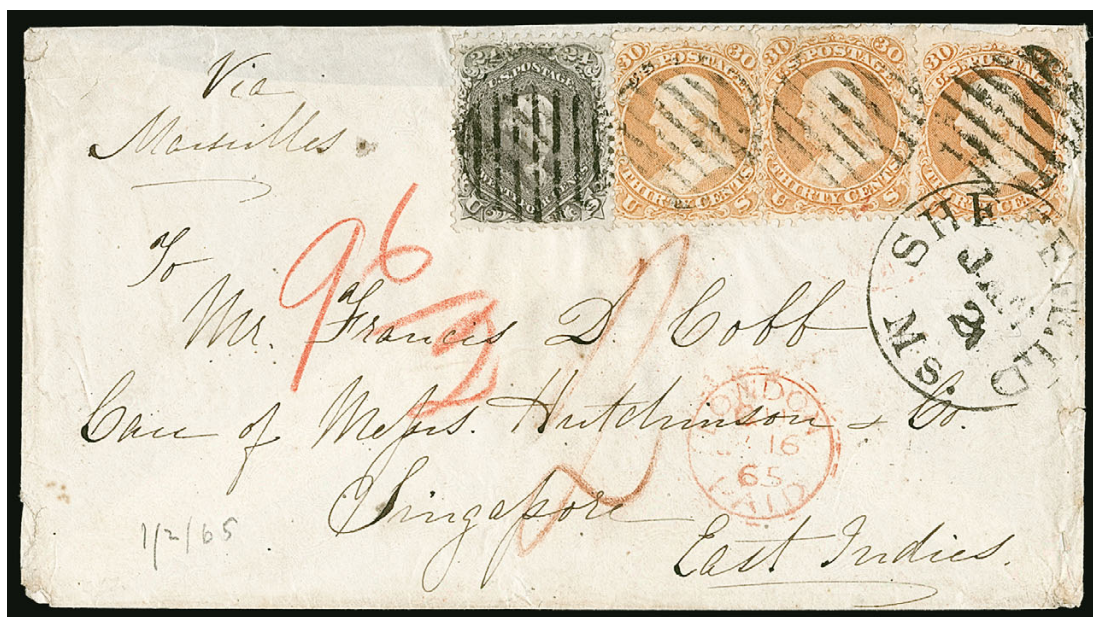 Via
Marseilles.
24 U.S. POSTAGE 24
U S
30 U.S. POSTAGE 30
THIRTY CENTS
U S
30 U.S. POSTAGE 30
THIRTY CENTS
U S
30 U.S. POSTAGE
SHEFFIELD
JAN
2
MS.
96
2
2
To
Mr. Francis D. Cobb
Care of Messrs. Hutchinson & Co.
Singapore
East Indies.
LONDON
16
65
PAID
1/2/65